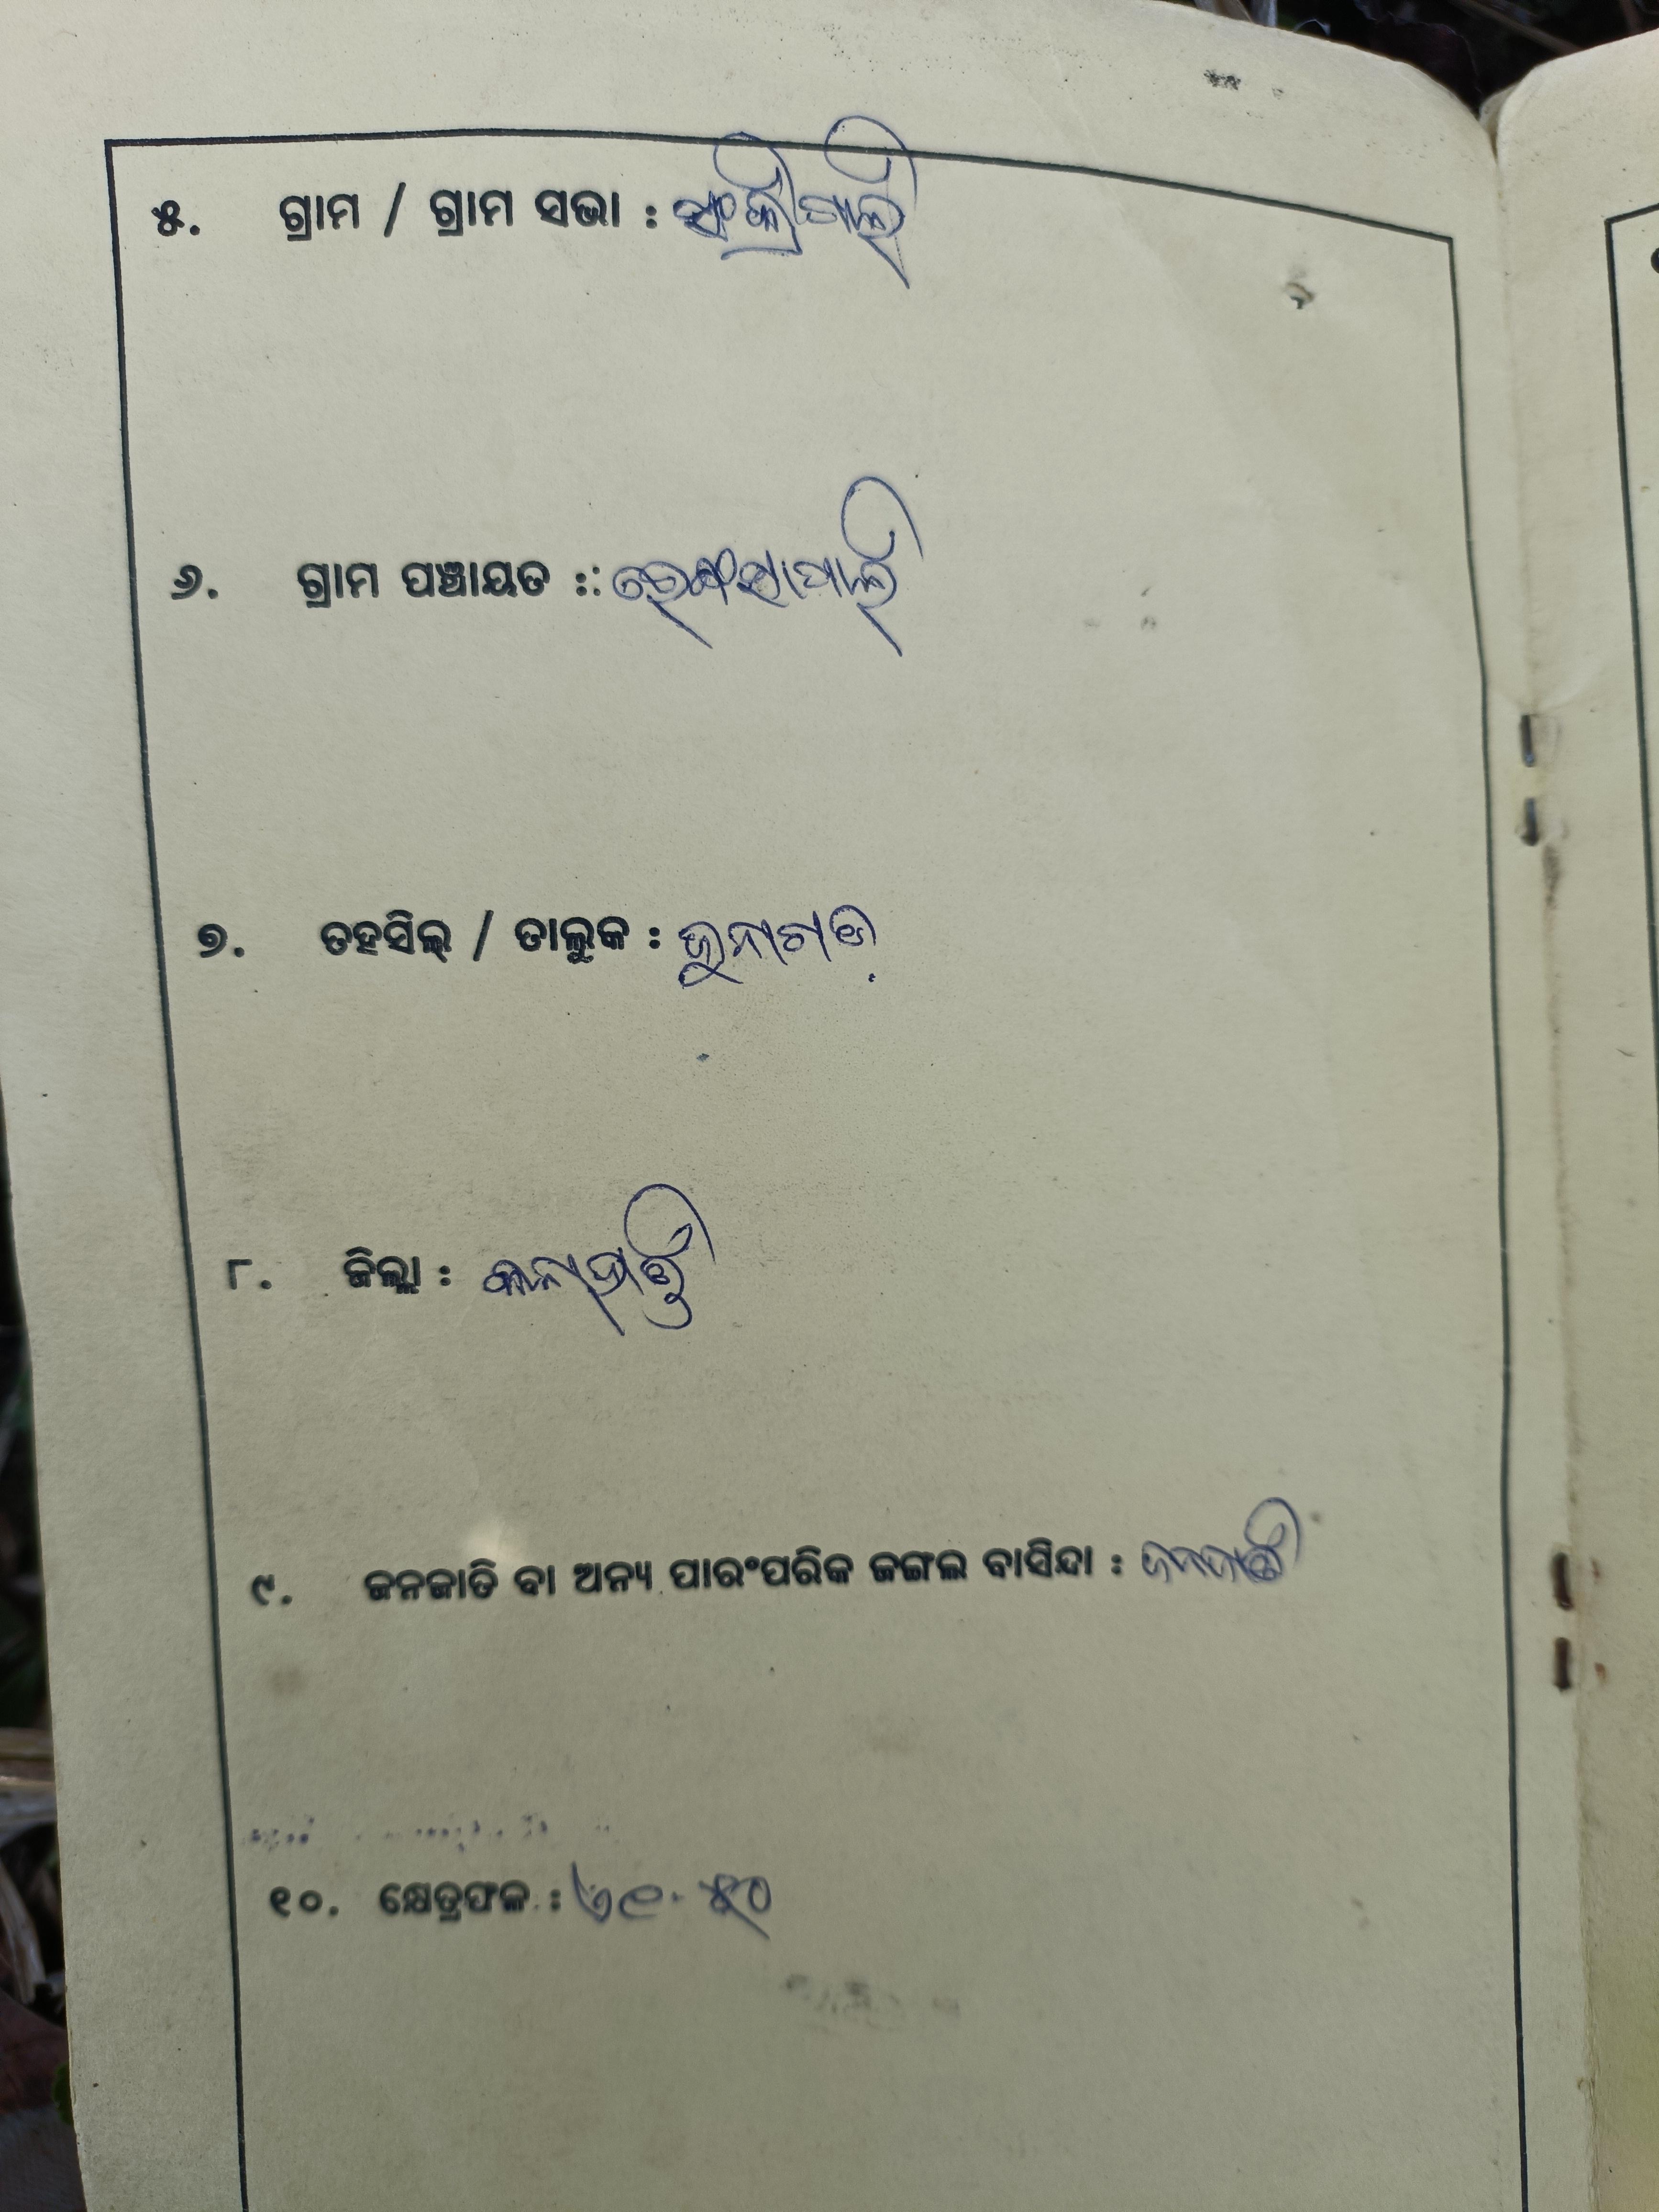 ୫. ଗ୍ରାମ / ଗ୍ରାମ ସଭା :
୬. ଗ୍ରାମ ପଞ୍ଚାୟତ :
୭. ତହସିଲ୍ / ତାଲୁକ : ଜୁନାଗଡ଼
୮. ଜିଲ୍ଲା : କଳାହାଣ୍ଡି
୯. ଜନଜାତି ବା ଅନ୍ୟ ପାରଂପରିକ ଜଙ୍ଗଲ ବାସିନ୍ଦା : ଜନଜାତି
୧୦. କ୍ଷେତ୍ରଫଳ :